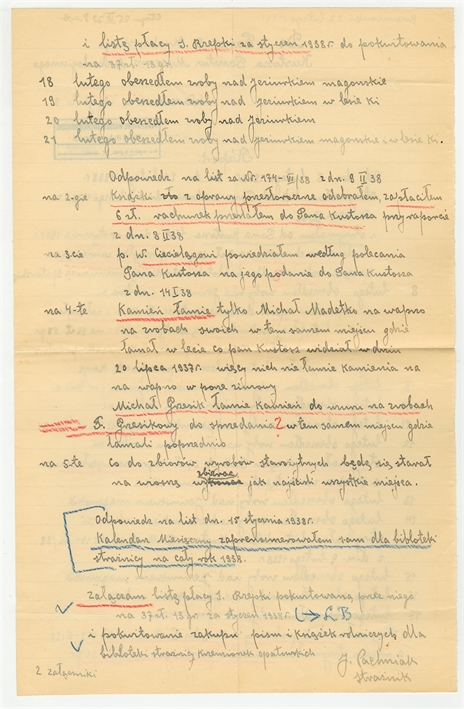 i listę płacy J. Rzepki za styczeń 1938r. do pokwitowania
na 37 zł. 18 gr.
18 lutego obeszedłem zroby nad Jeziorkiem magonskie
19 lutego obeszedłem zroby nad Jeziorkiem w lesie ki
20 lutego obeszedłem zroby nad Jeziorkiem
21 lutego obeszedłem zroby nad Jeziorkiem magonskie i w lesie ki.
Odpowiedz na list za Nr. 174-VI/38 z dn. 8 II 38
na 2-gie Książki zło z oprawy przetłoczone odebrałem, zapłaciłem
6 zł. rachunek przesłałem do Pana Kustosza przy raporcie
z dn. 8 II 38
na 3-cie p. W. Cieciełągowi powiedziałem według polecenia
Pana Kustosza na jego podanie do Pana Kustosza
z dn. 14 I 38
na 4-te Kamień łamie tylko Michał Madetko na wapno
na zrobach swoich w tem samem miejscu gdzie
łamał w lecie co pan Kustosz widział w dniu
20 lipca 1937r. więcej nich nie łamie kamienia na
na wapno w porze zimowy
Michał Grzesik łamie kamień do muru na zrobach
F. Gresikowy do sprzedania ? w tem samem miejscu gdzie
łamali poprzednio
na 5-te Co do zbiorów wyrobów starożytnych będę się starał
zbierać
na wiosnę jak najściśli wszystkie miejsca.
Odpowiedz na list dn. 15 stycznia 1938r.
Kalendarz Miesięczny zaprenumerowałem sam dla biblioteki
strażnicy na cały rok 1938.
Załączam listę płacy J. Rzepki pokwitowaną przez niego
na 37 zł. 18 gr. za styczeń 1938r. → LB
i pokwitowanie zakupu pism i książek rolniczych dla
biblioteki strażnicy Krzemionek opatowskich
2 załączniki
J. Pachniak
strażnik